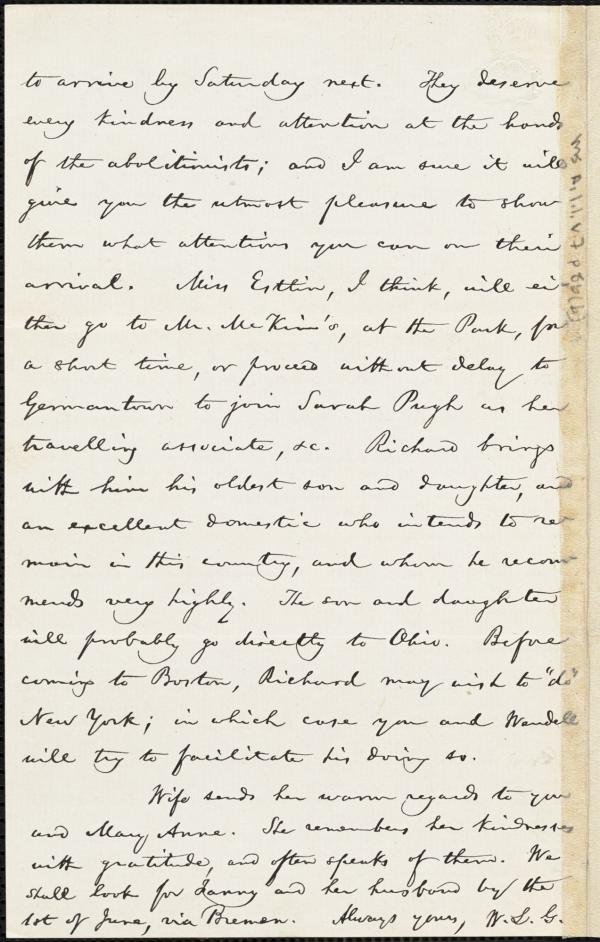 to arrive by Saturday next. They deserve
every kindness and attention at the hands
of the abolitionists; and I am sure it will
give you the utmost pleasure to show
them what attentions you can on their
arrival. Miss Estlin, I think, will ei-
ther go to Mr. McKim's, at the Park, for
a short time, or proceed without delay to
Germantown to join Sarah Pugh as her
travelling associate, &c. Richard brings
with him his oldest son and daughter, and
an excellent domestic who intends to re-
main in this country, and whom he recom-
mends very highly. The son and daughter
will probably go directly to Ohio. Before
coming to Boston, Richard may wish to "do"
New York; in which case you and Wendell
will try to facilitate his doing so.
Wife sends her warm regards to you
and Mary Anne. She remembers her kindnesses
with gratitude, and often speaks of them. We
shall look for Fanny and her husband by the
1st of June, via Bremen. Always yours, W. L. G.